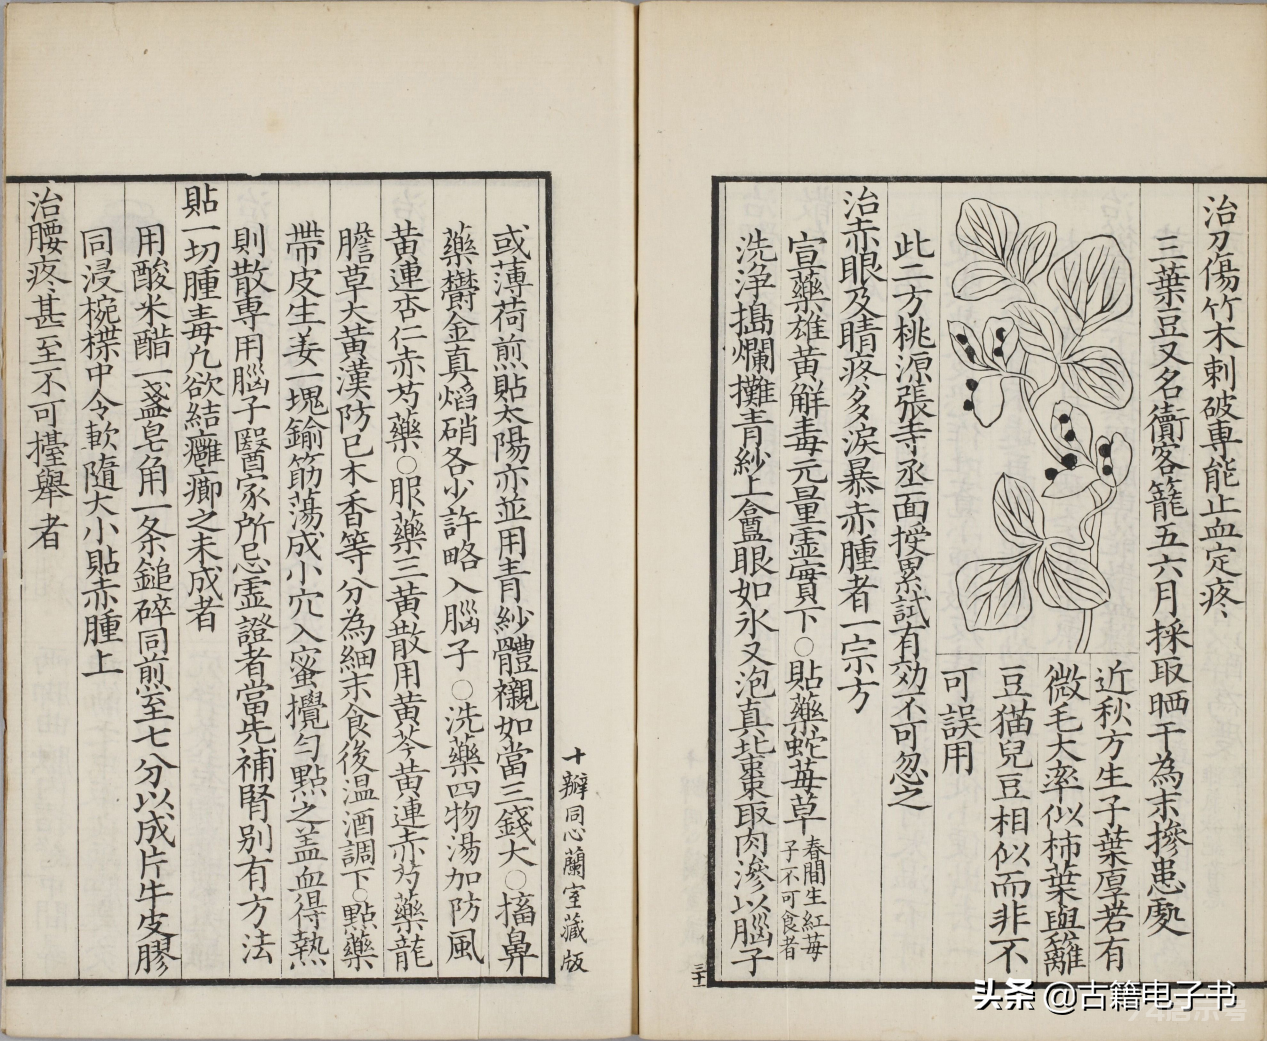 治刀傷竹木刺破專能止血定疼
三葉豆又名衞客籠五六月採取晒干為末摻患處
近秋方生子葉厚若有
微毛大率似柿葉與籬
豆猫兒豆相似而非不
可誤用
此二方桃源張寺丞面授累試有効不可忽之
治赤眼及睛疼多淚暴赤腫者一宗方
宣藥雄黃解毒元量虛實下○貼藥蛇莓草春間生紅莓子不可食者
洗淨搗爛攤青紗上盦眼如氷又泡真北棗取肉滲以腦子
三十
或薄荷煎貼太陽亦並用青紗體襯如當三錢大○搐鼻
藥欝金真熖硝各少許略入腦子○洗藥四物湯加防風
黃連杏仁赤芍藥○服藥三黃散用黃芩黃連赤芍藥龍
膽草大黃漢防已木香等分為細末食後温酒調下○點藥
帶皮生姜一塊鍮筯蕩成小穴入蜜攪勻點之盖血得熱
則散專用腦子醫家所忌虛證者當先補腎别有方法
貼一切腫毒凢欲結癰癤之未成者
用酸米醋一盞皂角一条鎚碎同煎至七八分以成片牛皮膠
同浸椀楪中令軟隨大小貼赤腫上
治腰疼甚至不可擡舉者
十瓣同心蘭室藏版
头条 @古籍电子书